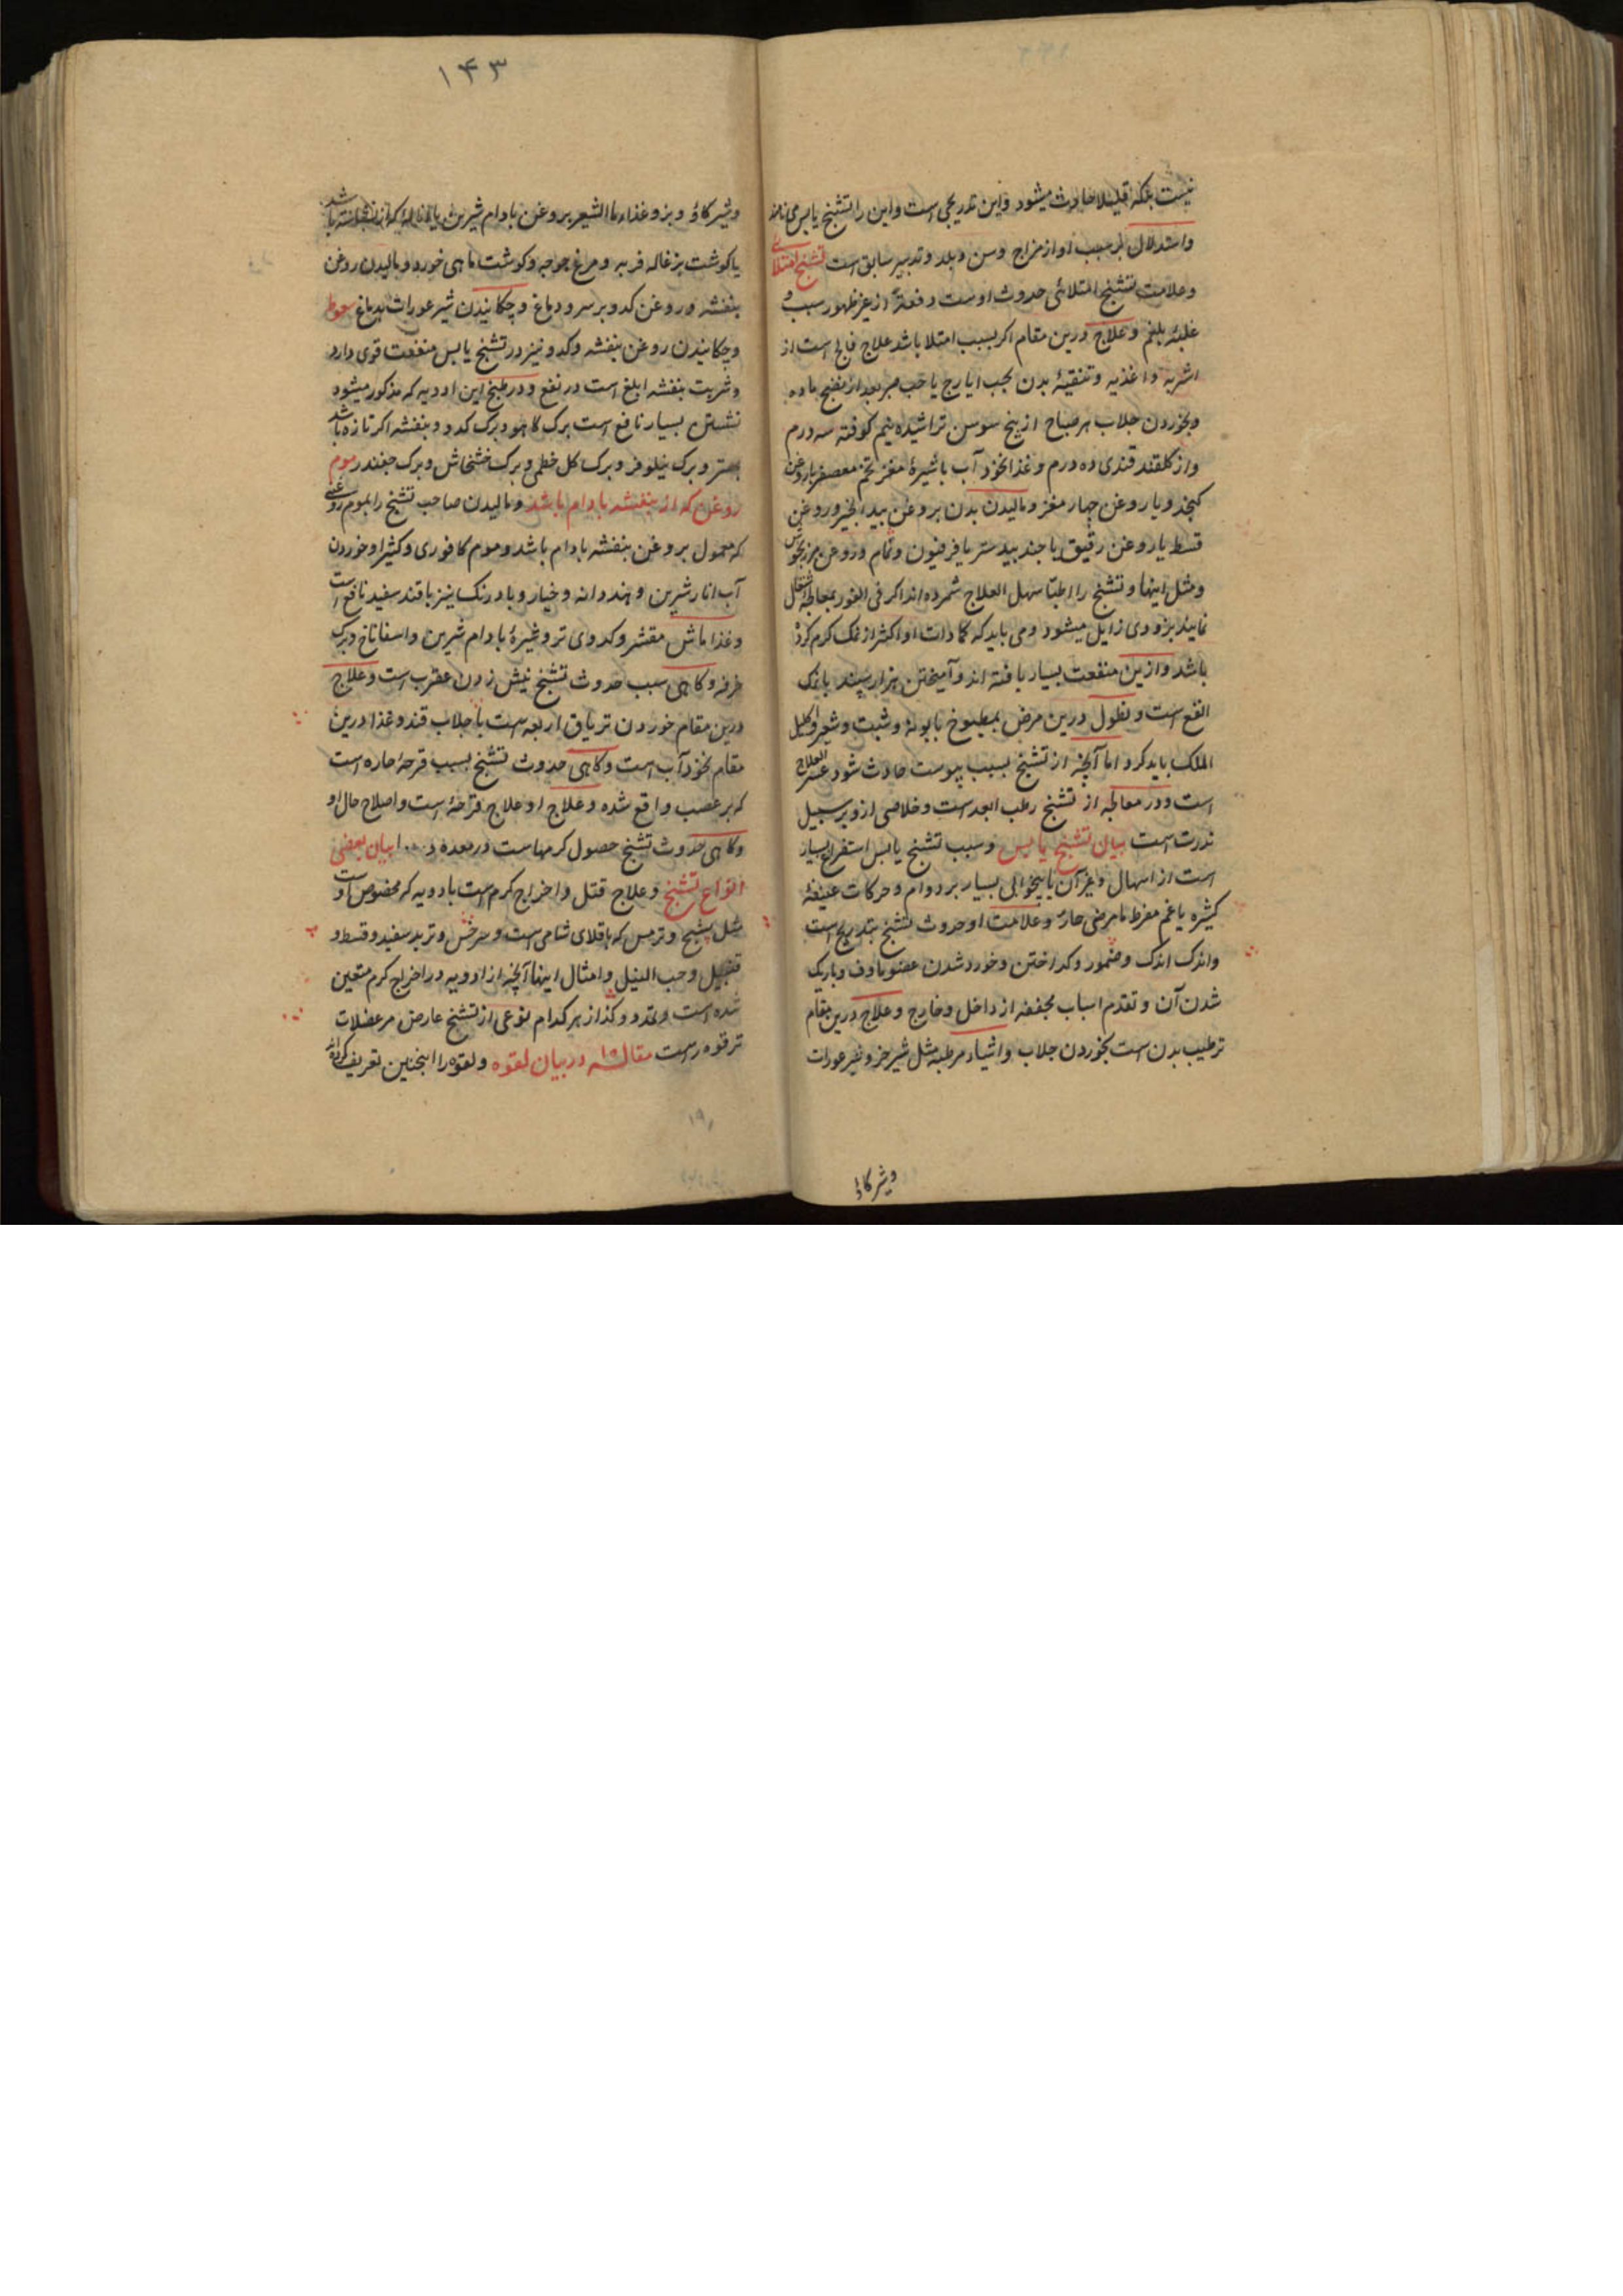 نیست بلکه قلیلا حادث میشود و این تدریجی است و این را تشنج یابس می نامند
و استدلال بر سبب او از مزاج و سن و بلد و تدبیر سابق است تشنج امتلائی
و علامت تشنج امتلائی حدوث اوست دفعةً از غیر ظهور سبب و
غلبهٔ بلغم و علاج درین مقام اکر بسبب امتلا باشد علاج فالج است از
اشربه و اغذیه و تنقیهٔ بدن بحب ایارج یا حب صبر بعد از نضج ماده
و بخوردن جلاب هر صباح از بیخ سوسن تراشیده نیم کوفته سه درم
و از کلقند قندی ده درم و غذا نخود آب با شیرهٔ مغز تخم معصفر با روغن
کنجد و یا روغن چهار مغز و مالیدن بدن بروغن بید انجیر و روغن
قسط یا روغن رقیق با جند بیدستر یا فرفیون و تمام و روغن مرزنجوش
و مثل اینها و تشنج را اطبا سهل العلاج شمرده اند اکر فی الفور بمعالجه اشتغال
نمایند بزودی زایل میشود و می باید که کمادات او اکثر از نمک کرم کرده
باشد و ازین منفعت بسیار یافته اند و آمیختن هزار سپند با نمک
انفع است و نطول درین مرض بمطبوخ بابونه و شبت و شعیر و اکلیل
الملک باید کرد اما آنچه از تشنج بسبب یبوست حادث شود عسر العلاج
است و در معالجه از تشنج رطب ابعد است و خلاصی ازو بر سبیل
ندرت است بیان تشنج یابس و سبب تشنج یابس استفراغ بسیار
است از اسهال و غیر آن یا بیخوابی بسیار بر دوام و حرکات عنیفهٔ
کثیره یا غم مفرط یا مرضی حار و علامت او حدوث تشنج بتدریج است
و اندک اندک و ضمور و کداختن و خورد شدن عضو ماوف و باریک
شدن آن و تقدم اسباب مجففه از داخل و خارج و علاج درین مقام
ترطیب بدن است بخوردن جلاب و اشیاء مرطبه مثل شیر خر و شیر عورات
و شیر کاو
۱۴۳
و شیر کاو و بز و غذاء ما الشعیر بروغن بادام شیرین یا که از نشاسته باشد
یا کوشت بزغاله فربه و مرغ جوجه و کوشت ماهی خورد و مالیدن روغن
بنفشه و روغن کدو بر سر و دماغ و چکانیدن شیر عورات بدماغ
و چکانیدن روغن بنفشه و کدو نیز در تشنج یابس منفعت قوی دارد
و شربت بنفشه ابلغ است در نفع و در طبخ این ادویه که مذکور میشود
نشستن بسیار نافع است برک کاهو و برک کدو و بنفشه اکر تازه باشد
بهتر و برک نیلوفر و برک کل خطمی و برک خشخاش و برک چغندر موم
روغن که از بنفشه بادام باشد و مالیدن صاحب تشنج را بموم روغنی
که معمول بروغن بنفشه بادام باشد و موم کافوری و کثیرا و خوردن
آب انار شیرین و هندوانه و خیار و بادرنک نیز با قند سفید نافع است
و غذا ماش مقشر و کدوی تر و غیرهٔ بادام شیرین و اسفاناخ و برک
خرفه و کاهی سبب حدوث تشنج نیش زدن عقرب است و علاج
درین مقام خوردن تریاق اربعه است با جلاب قند و غذا درین
مقام نخود آب است و کاهی حدوث تشنج بسبب قرحهٔ حاره است
که بر عصب واقع شده و علاج او علاج قرحهٔ است و اصلاح حال او
و کاهی حدوث تشنج حصول کرمهاست در معده و بیان بعضی
انواع تشنج و علاج قتل و اخراج کرم است بادویه که مخصوص اوست
مثل شیح و ترمس که باقلای شامی است و سرخس و تربد سفید و قسط و
قنبیل و حب النیل و امثال اینها آنچه از ادویه در اخراج کرم متعین
شده است و تمدد و کذاز هر کدام نوعی از تشنج عارض مر عضلات
ترقوه راست مقاله ۱۵ در بیان لقوه و لقوه را اینچنین تعریف کرده اند